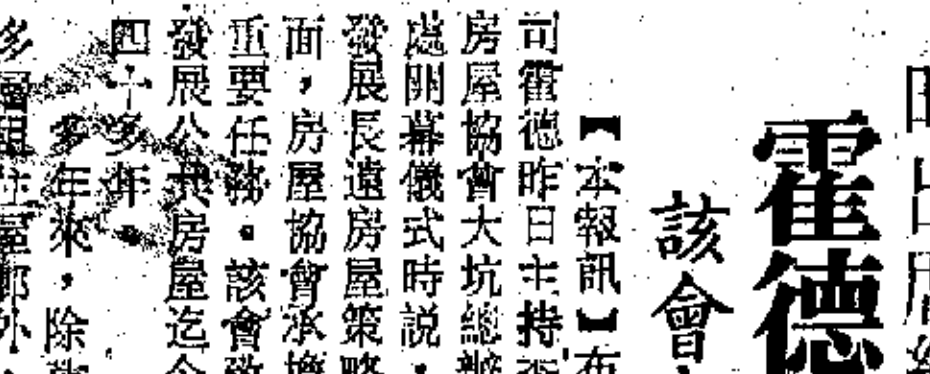 霍德
該會
【本報訊】布
司霍德昨日主持香
房屋協會大坑總辦
處開幕儀式時説，
發展長遠房屋策略
面，房屋協會承擔
重要任務。該會致
發展公共房屋迄今
四十多年。
多年來，除
多層